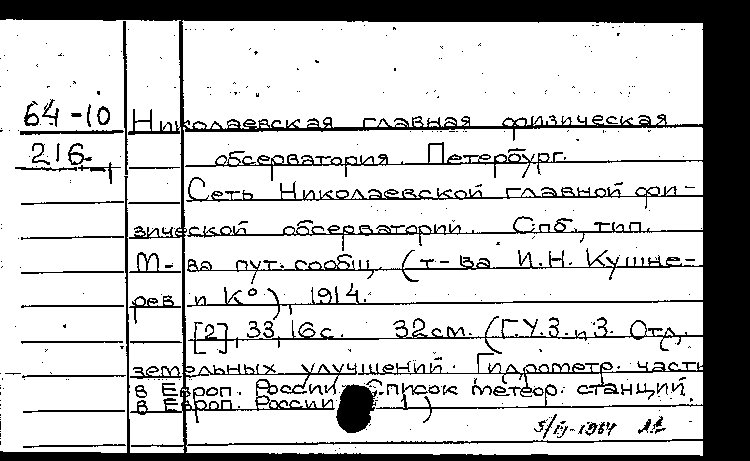 64-10
216
Николаевская главная физическая
обсерватория. Петербург.
Сеть Николаевской главной фи-
зической обсерватории. Спб., тип.
М-ва пут. сообщ. (т-ва И.Н. Кушне-
рев и К°), 1914.
[2], 33, 16 с. 32 см. (Г.У.З. и З. Отд.
земельных улучшений. Гидрометр. часть
в Европ. России. Список метеор. станций.
в Европ. России 1)